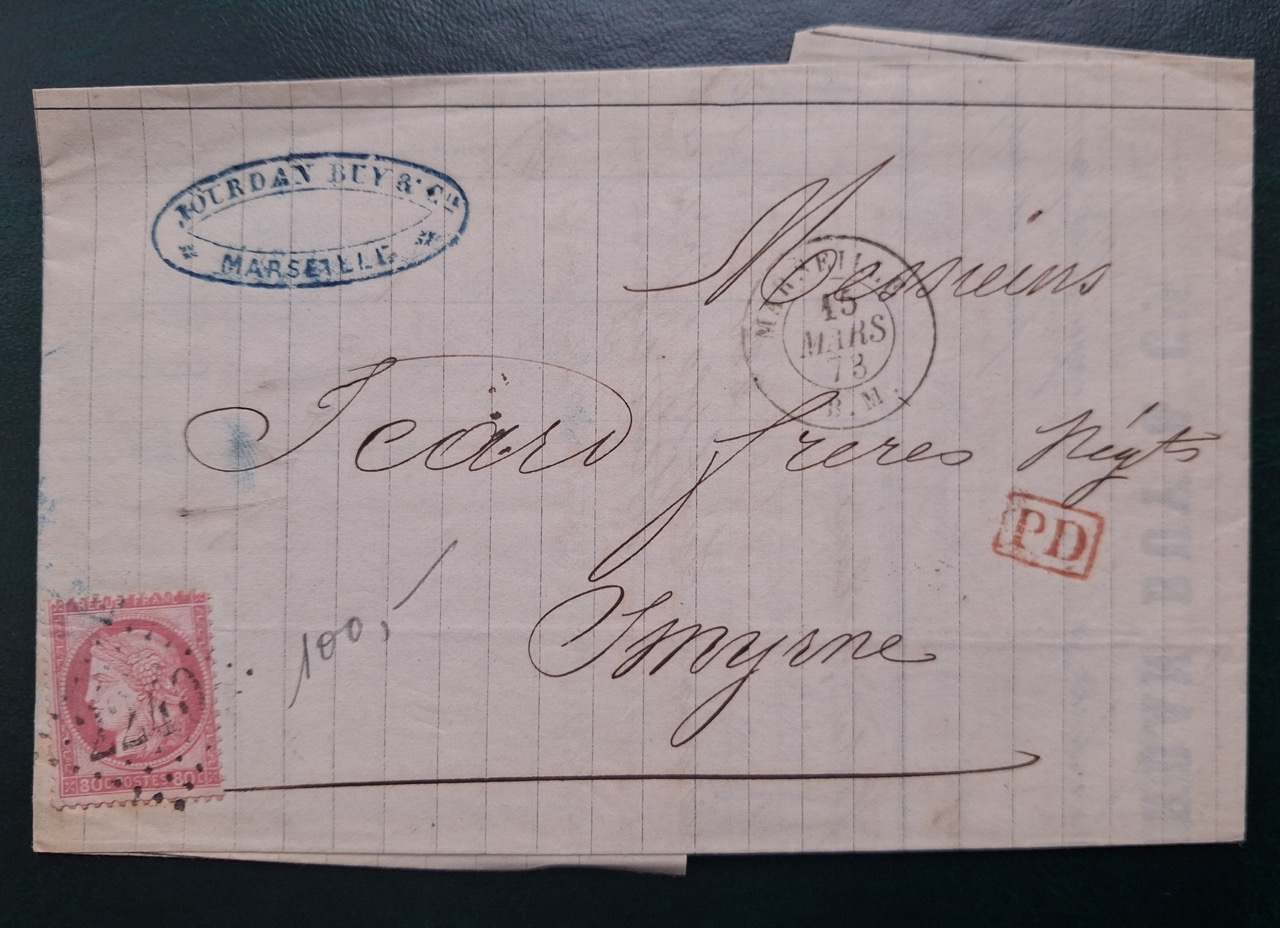 JOURDAN BUY & Cie
MARSEILLE
Messieurs
MARSEILLE
15
MARS
73
B.M.
Icard freres Négts
PD
Smyrne
100,-
REPUB FRANC
2240
80C POSTES 80C